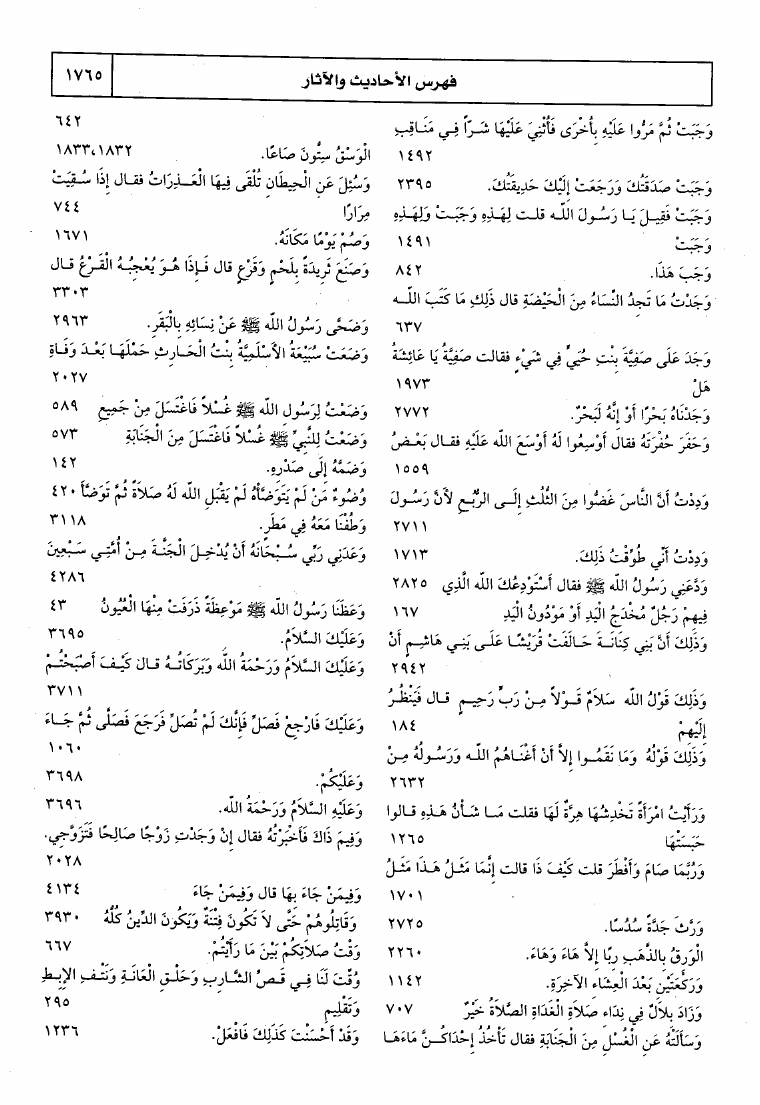 فهرس الأحاديث والآثار ١٧٦٥
وَجَبَتْ ثُمَّ مَرُّوا عَلَيْهِ بِأُخْرَى فَأُثْنِيَ عَلَيْهَا شَرًّا فِي مَنَاقِبِ
١٤٩٢
وَجَبَتْ صَدَقَتُكَ وَرَجَعَتْ إِلَيْكَ حَدِيقَتُكَ. ٢٣٩٥
وَجَبَتْ فَقِيلَ يَا رَسُولَ اللَّه قلت لِهَذِهِ وَجَبَتْ وَلِهَذِهِ
وَجَبَتْ ١٤٩١
وَجَبَ هَذَا. ٨٤٢
وَجَدْتُ مَا تَجِدُ النِّسَاءُ مِنَ الْحَيْضَةِ قال ذَلِكِ مَا كَتَبَ اللَّه
٦٣٧
وَجَدَ عَلَى صَفِيَّةَ بِنْتِ حُيَيٍّ فِي شَيْءٍ فقالت صَفِيَّةُ يَا عَائِشَةُ
هَلْ ١٩٧٣
وَجَدْنَاهُ بَحْرًا أَوْ إِنَّهُ لَبَحْرٌ. ٢٧٧٢
وَحَفَرَ حُفْرَتَهُ فقال أَوْسِعُوا لَهُ أَوْسَعَ اللَّه عَلَيْهِ فقال بَعْضُ
١٥٥٩
وَدِدْتُ أَنَّ النَّاسَ غَضُّوا مِنَ الثُّلُثِ إِلَى الرُّبُعِ لأَنَّ رَسُولَ
٢٧١١
وَدِدْتُ أَنِّي طُوِّقْتُ ذَلِكَ. ١٧١٣
وَدَّعَنِي رَسُولُ اللَّه ﷺ فقال أَسْتَوْدِعُكَ اللَّه الَّذِي ٢٨٢٥
فِيهِمْ رَجُلٌ مُخْدَجُ الْيَدِ أَوْ مَوْدُونُ الْيَدِ ١٦٧
وَذَلِكَ أَنَّ بَنِي كِنَانَةَ حَالَفَتْ قُرَيْشًا عَلَى بَنِي هَاشِمٍ أَنْ
٢٩٤٢
وَذَلِكَ قَوْلُ اللَّه سَلاَمٌ قَوْلاً مِنْ رَبٍّ رَحِيمٍ قال فَيَنْظُرُ
إِلَيْهِمْ ١٨٤
وَذَلِكَ قَوْلُهُ وَمَا نَقَمُوا إِلاَّ أَنْ أَغْنَاهُمُ اللَّه وَرَسُولُهُ مِنْ
٢٦٣٢
وَرَأَيْتُ امْرَأَةً تَخْدِشُهَا هِرَّةٌ لَهَا فقلت مَا شَأْنُ هَذِهِ قالوا
حَبَسَتْهَا ١٢٦٥
وَرُبَّمَا صَامَ وَأَفْطَرَ قلت كَيْفَ ذَا قالت إِنَّمَا مَثَلُ هَذَا مَثَلُ
١٧٠١
وَرَّثَ جَدَّةً سُدُسًا. ٢٧٢٥
الْوَرِقُ بِالذَّهَبِ رِبًا إِلاَّ هَاءَ وَهَاءَ. ٢٢٦٠
وَرَكْعَتَيْنِ بَعْدَ الْعِشَاءِ الآخِرَةِ. ١١٤٢
وَزَادَ بِلاَلٌ فِي نِدَاءِ صَلاَةِ الْغَدَاةِ الصَّلاَةُ خَيْرٌ ٧٠٧
وَسَأَلَتْهُ عَنِ الْغُسْلِ مِنَ الْجَنَابَةِ فقال تَأْخُذُ إِحْدَاكُنَّ مَاءَهَا
٦٤٢
الْوَسْقُ سِتُّونَ صَاعًا. ١٨٣٣،١٨٣٢
وَسُئِلَ عَنِ الْحِيطَانِ تُلْقَى فِيهَا الْعَذِرَاتُ فقال إِذَا سُقِيَتْ
مِرَارًا ٧٤٤
وَصُمْ يَوْمًا مَكَانَهُ. ١٦٧١
وَصَنَعَ ثَرِيدَةً بِلَحْمٍ وَقَرْعٍ قال فَإِذَا هُوَ يُعْجِبُهُ الْقَرْعُ قال
٣٣٠٣
وَضَحَّى رَسُولُ اللَّه ﷺ عَنْ نِسَائِهِ بِالْبَقَرِ. ٢٩٦٣
وَضَعَتْ سُبَيْعَةُ الأَسْلَمِيَّةُ بِنْتُ الْحَارِثِ حَمْلَهَا بَعْدَ وَفَاةِ
٢٠٢٧
وَضَعْتُ لِرَسُولِ اللَّه ﷺ غُسْلاً فَاغْتَسَلَ مِنْ جَمِيعِ ٥٨٩
وَضَعْتُ لِلنَّبِيِّ ﷺ غُسْلاً فَاغْتَسَلَ مِنَ الْجَنَابَةِ ٥٧٣
وَضَمَّهُ إِلَى صَدْرِهِ. ١٤٢
وُضُوءُ مَنْ لَمْ يَتَوَضَّأْهُ لَمْ يَقْبَلِ اللَّه لَهُ صَلاَةً ثُمَّ تَوَضَّأَ ٤٢٠
وَطُفْنَا مَعَهُ فِي مَطَرٍ. ٣١١٨
وَعَدَنِي رَبِّي سُبْحَانَهُ أَنْ يُدْخِلَ الْجَنَّةَ مِنْ أُمَّتِي سَبْعِينَ
٤٢٨٦
وَعَظَنَا رَسُولُ اللَّه ﷺ مَوْعِظَةً ذَرَفَتْ مِنْهَا الْعُيُونُ ٤٣
وَعَلَيْكَ السَّلاَمُ. ٣٦٩٥
وَعَلَيْكَ السَّلاَمُ وَرَحْمَةُ اللَّه وَبَرَكَاتُهُ قال كَيْفَ أَصْبَحْتُمْ
٣٧١١
وَعَلَيْكَ فَارْجِعْ فَصَلِّ فَإِنَّكَ لَمْ تُصَلِّ فَرَجَعَ فَصَلَّى ثُمَّ جَاءَ
١٠٦٠
وَعَلَيْكُمْ. ٣٦٩٨
وَعَلَيْهِ السَّلاَمُ وَرَحْمَةُ اللَّه. ٣٦٩٦
وَفِيمَ ذَاكَ فَأَخْبَرْتُهُ فقال إِنْ وَجَدْتِ زَوْجًا صَالِحًا فَتَزَوَّجِي.
٢٠٢٨
وَفِيمَنْ جَاءَ بِهَا قال وَفِيمَنْ جَاءَ ٤١٣٤
وَقَاتِلُوهُمْ حَتَّى لاَ تَكُونَ فِتْنَةٌ وَيَكُونَ الدِّينُ كُلُّهُ ٣٩٣٠
وَقْتُ صَلاَتِكُمْ بَيْنَ مَا رَأَيْتُمْ. ٦٦٧
وُقِّتَ لَنَا فِي قَصِّ الشَّارِبِ وَحَلْقِ الْعَانَةِ وَنَتْفِ الإِبِطِ
وَتَقْلِيمِ ٢٩٥
وَقَدْ أَحْسَنْتَ كَذَلِكَ فَافْعَلْ. ١٢٣٦